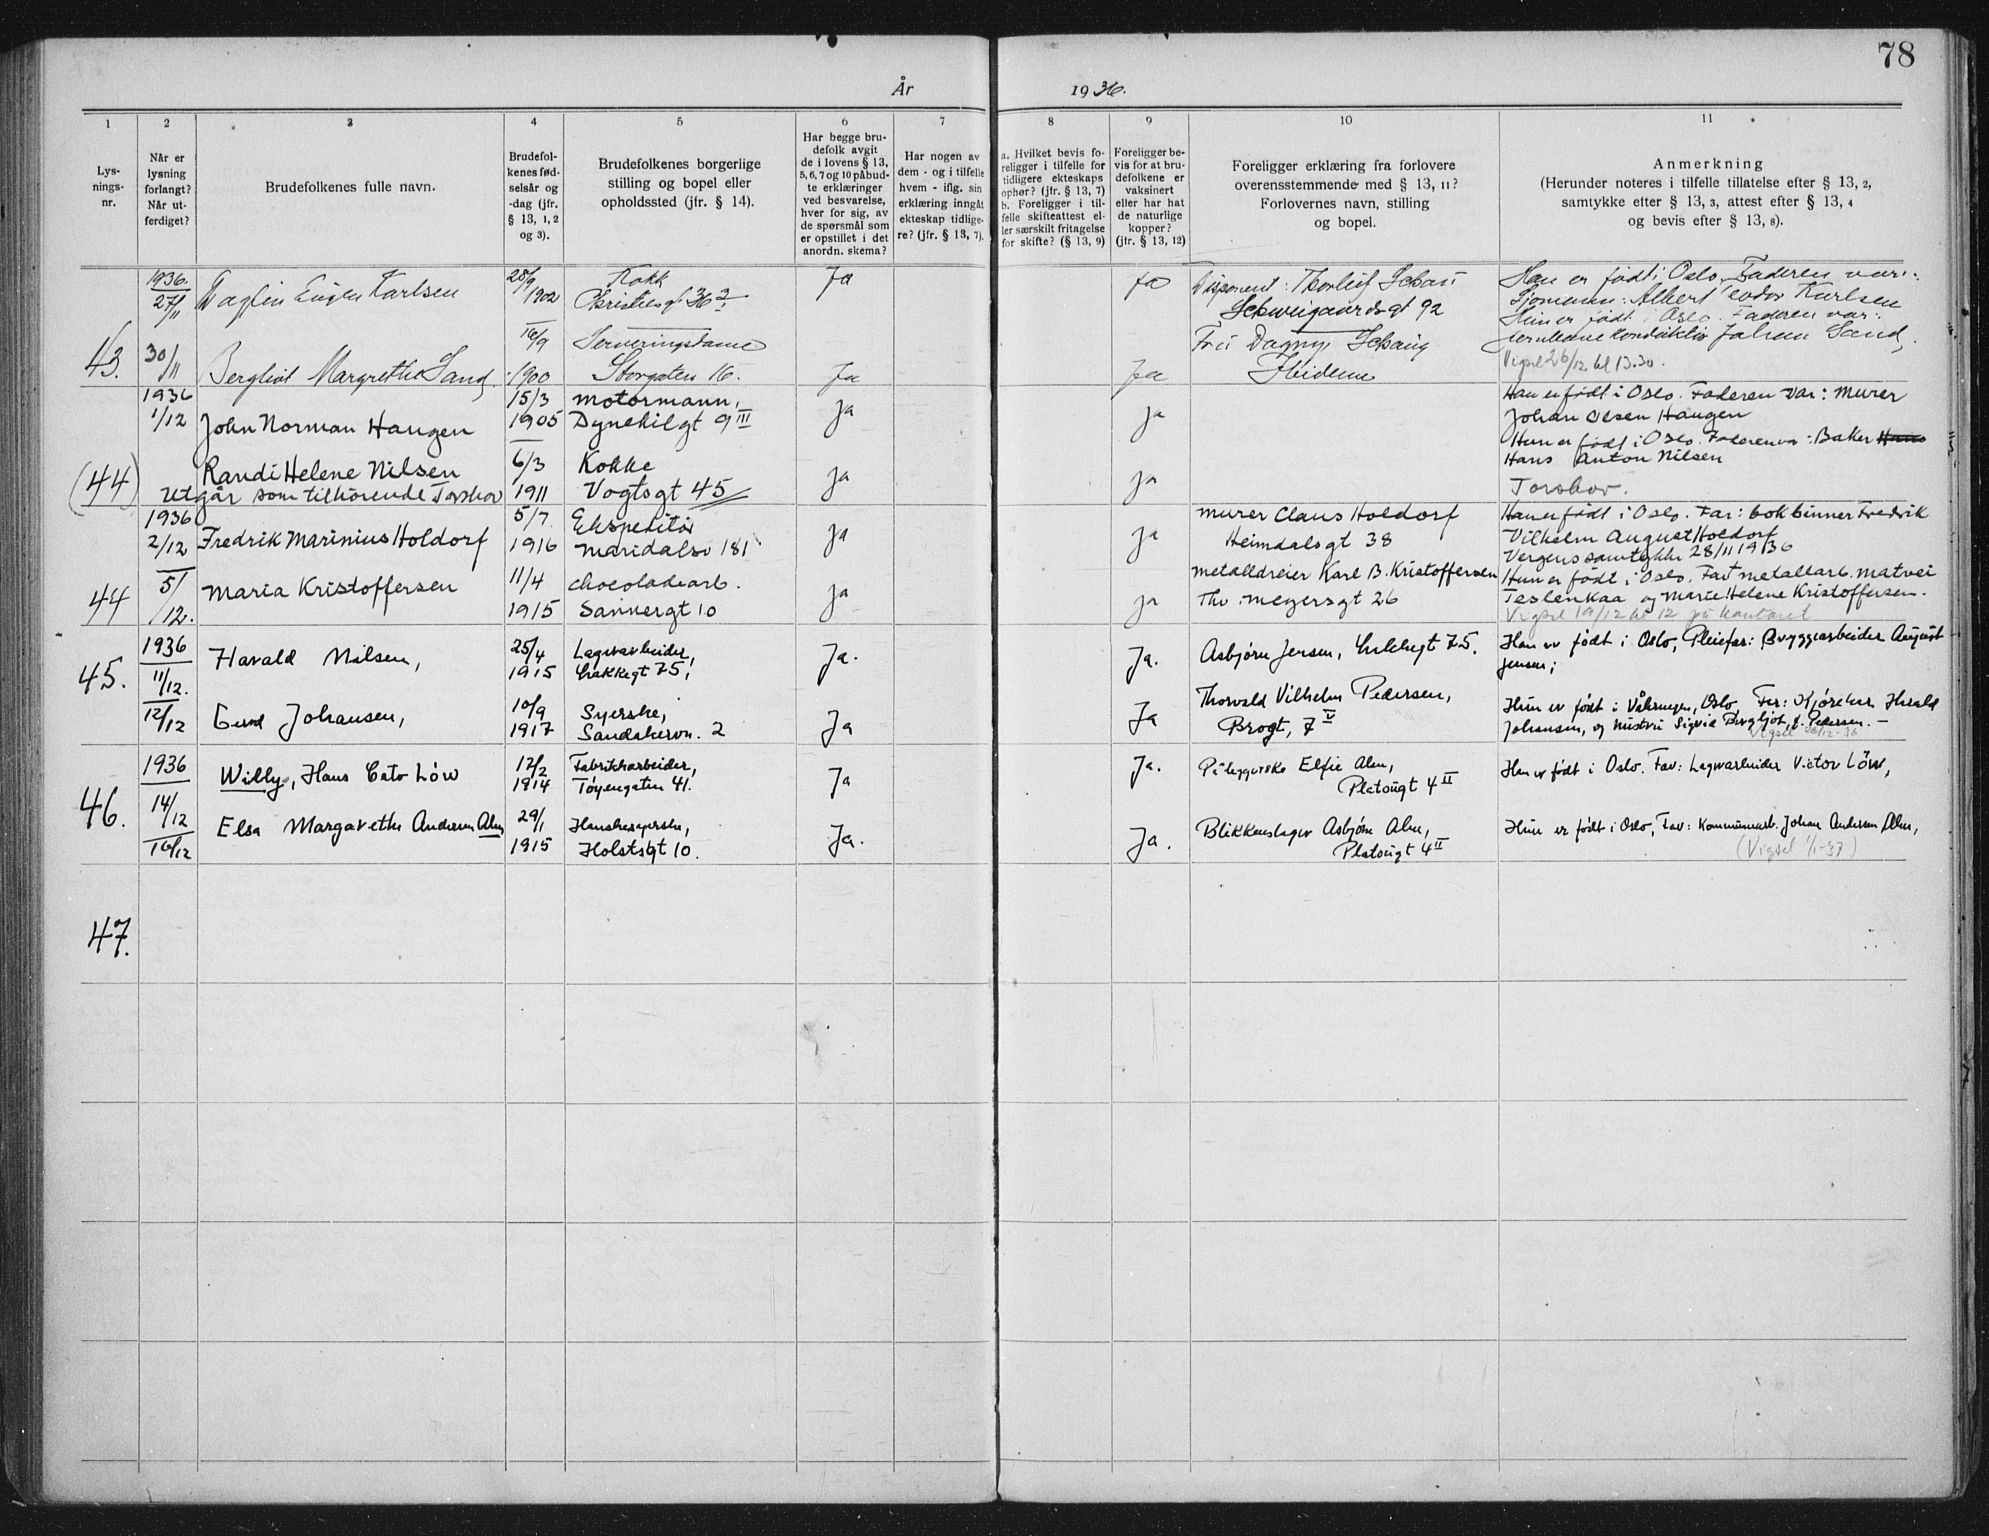 78
År 1936.
1 2 3 4 5 6 7 8 9 10 11
Lys-
nings-
nr.
Når er
lysning
forlangt?
Når ut-
ferdiget?
Brudefolkenes fulle navn.
Brudefol-
kenes fød-
selsår og
-dag (jfr.
§ 13, 1, 2
og 3).
Brudefolkenes borgerlige
stilling og bopel eller
opholdssted (jfr. § 14).
Har begge bru-
defolk avgit
de i lovens § 13,
5, 6, 7 og 10 påbud-
te erklæringer
ved besvarelse,
hver for sig, av
de spørsmål som
er opstillet i det
anordn. skema?
Har nogen av
dem - og i tilfelle
hvem - iflg. sin
erklæring inngåt
ekteskap tidlige-
re? (jfr. § 13, 7).
a. Hvilket bevis fo-
religger i tilfelle for
tidligere ekteskaps
ophør? (jfr. § 13, 7)
b. Foreligger i til-
felle skifteattest el-
ler særskilt fritagelse
for skifte? (§ 13, 9)
Foreligger be-
vis for at bru-
defolkene er
vaksinert
eller har hat
de naturlige
kopper?
(jfr. § 13, 12)
Foreligger erklæring fra forlovere
overensstemmende med § 13, 11?
Forlovernes navn, stilling
og bopel.
Anmerkning
(Herunder noteres i tilfelle tillatelse efter § 13, 2,
samtykke efter § 13, 3, attest efter § 13, 4
og bevis efter § 13, 8).
43.
1936.
27/11
30/11
Dagfin Eugen Karlsen
28/9
1902
Kokk
Christiesgt 36
Ja
ja
Disponent: Thorleif Schau
Schweigaardsgt 92
Han er født i Oslo. Faderen var:
Sjømann: Albert Teodor Karlsen
Bergliot Margrethe Sand,
16/9
1900
Serveringsdame
Storgaten 16.
Ja
ja
Fru Dagny Schau
Hun er født i Oslo. Faderen var:
Johan Sand,
Vigsel 26/12 kl 13.30.
(44)
1936
1/12
John Norman Haugen
15/3
1905
motormann,
Dynekilgt 9 III
ja
ja
Han er født i Oslo. Faderen var: Murer
Johan Olsen Haugen
Randi Helene Nilsen
utgår som tilhørende Torshov
6/3
1911
Kokke
Vogtsgt 45
ja
ja
Hun er født i Oslo. Faderen var: Baker Hans
Hans Anton Nilsen
Torshov.
44
1936
2/12
5/12.
Fredrik Marinius Holdorf
5/7
1916
Ekspeditør
Maridalsv 181
ja
ja
murer Claus Holdorf
Heimdalsgt 38
Han er født i Oslo. Far: bokbinner Fredrik
Vilhelm August Holdorf
Vergens samtykke 28/11 1936
Maria Kristoffersen
11/4
1915
chocoladearb.
Sannergt 10
ja
ja
metalldreier Karl B. Kristoffersen
Thv. Meyersgt 26
Hun er født i Oslo. Far metallarb. Matvei
Teslenkaa og Marie Helene Kristoffersen.
Vigsel 19/12 kl 12 på kontoret
45.
1936
11/12.
12/12
Harald Nilsen,
25/4
1915
Lagerarbeider,
Lakkegt 75,
Ja.
Ja.
Asbjørn Jensen, Lakkegt 75.
Han er født i Oslo, Pleiefar: Bryggearbeider August
Jensen;
Gerd Johansen,
10/9
1917
Syerske,
Sandakervn. 2
Ja
Ja
Thorvald Vilhelm Pedersen,
Brogt, 7 V
Hun er født i Vålerengen, Oslo, Far: Kjørekar Harald
Johansen, og hustru Sigrid Bergljot, f. Pedersen. –
Vigsel 26/12-36
46.
1936
14/12
16/12
Willy, Hans Cato Löw
12/2
1914
Fabrikkarbeider,
Tøyengaten 41.
Ja
Ja.
Påleggerske Elfie Alm,
Platougt 4 II
Han er født i Oslo. Far: Lagerarbeider Victor Löw,
Elsa Margarethe Andersen Alm,
29/1
1915
Hanskesyerske,
Holstsgt 10.
Ja.
Ja.
Blikkenslager Asbjørn Alm,
Platougt 4 II
Hun er født i Oslo, Far: Kommunearb. Johan Andersen Alm,
(Vigsel 1/1-37)
47.